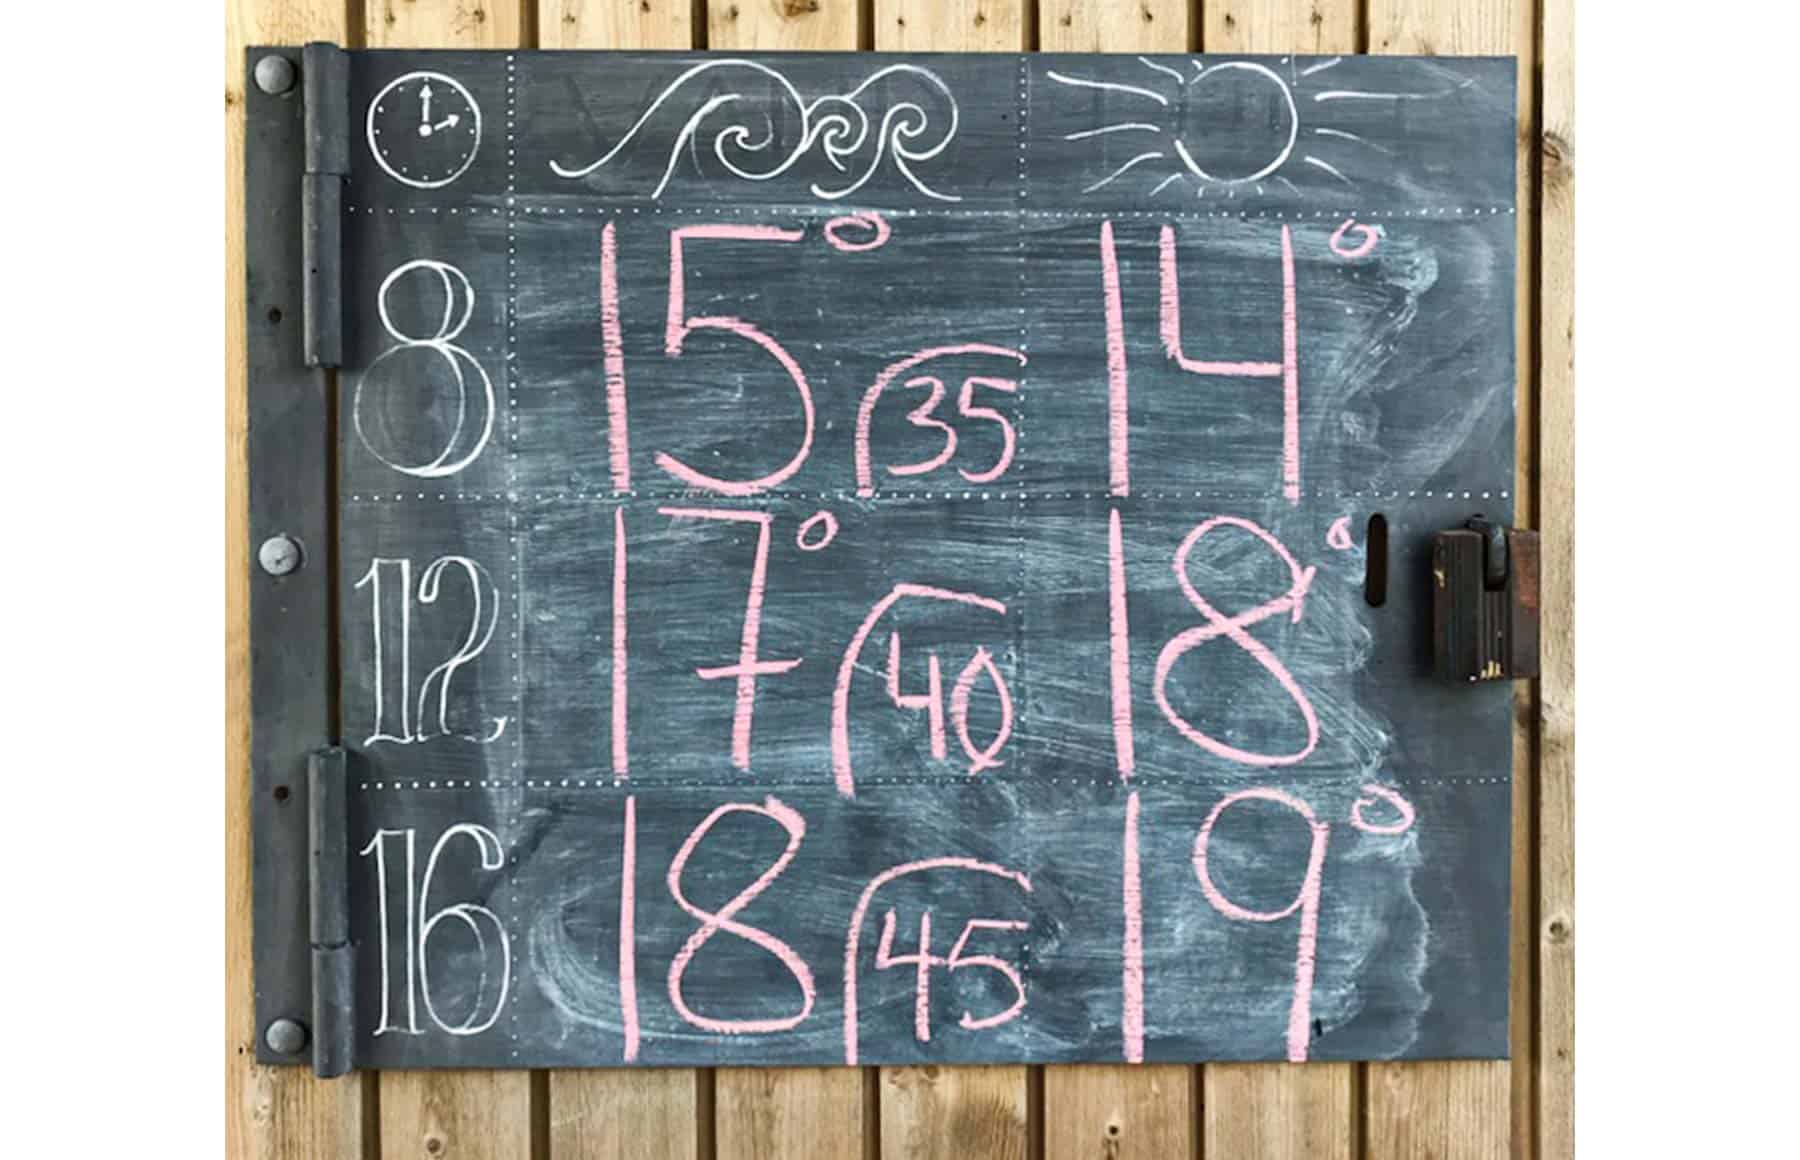 8 15° 35 14°
12 17° 40 18°
16 18 45 19°